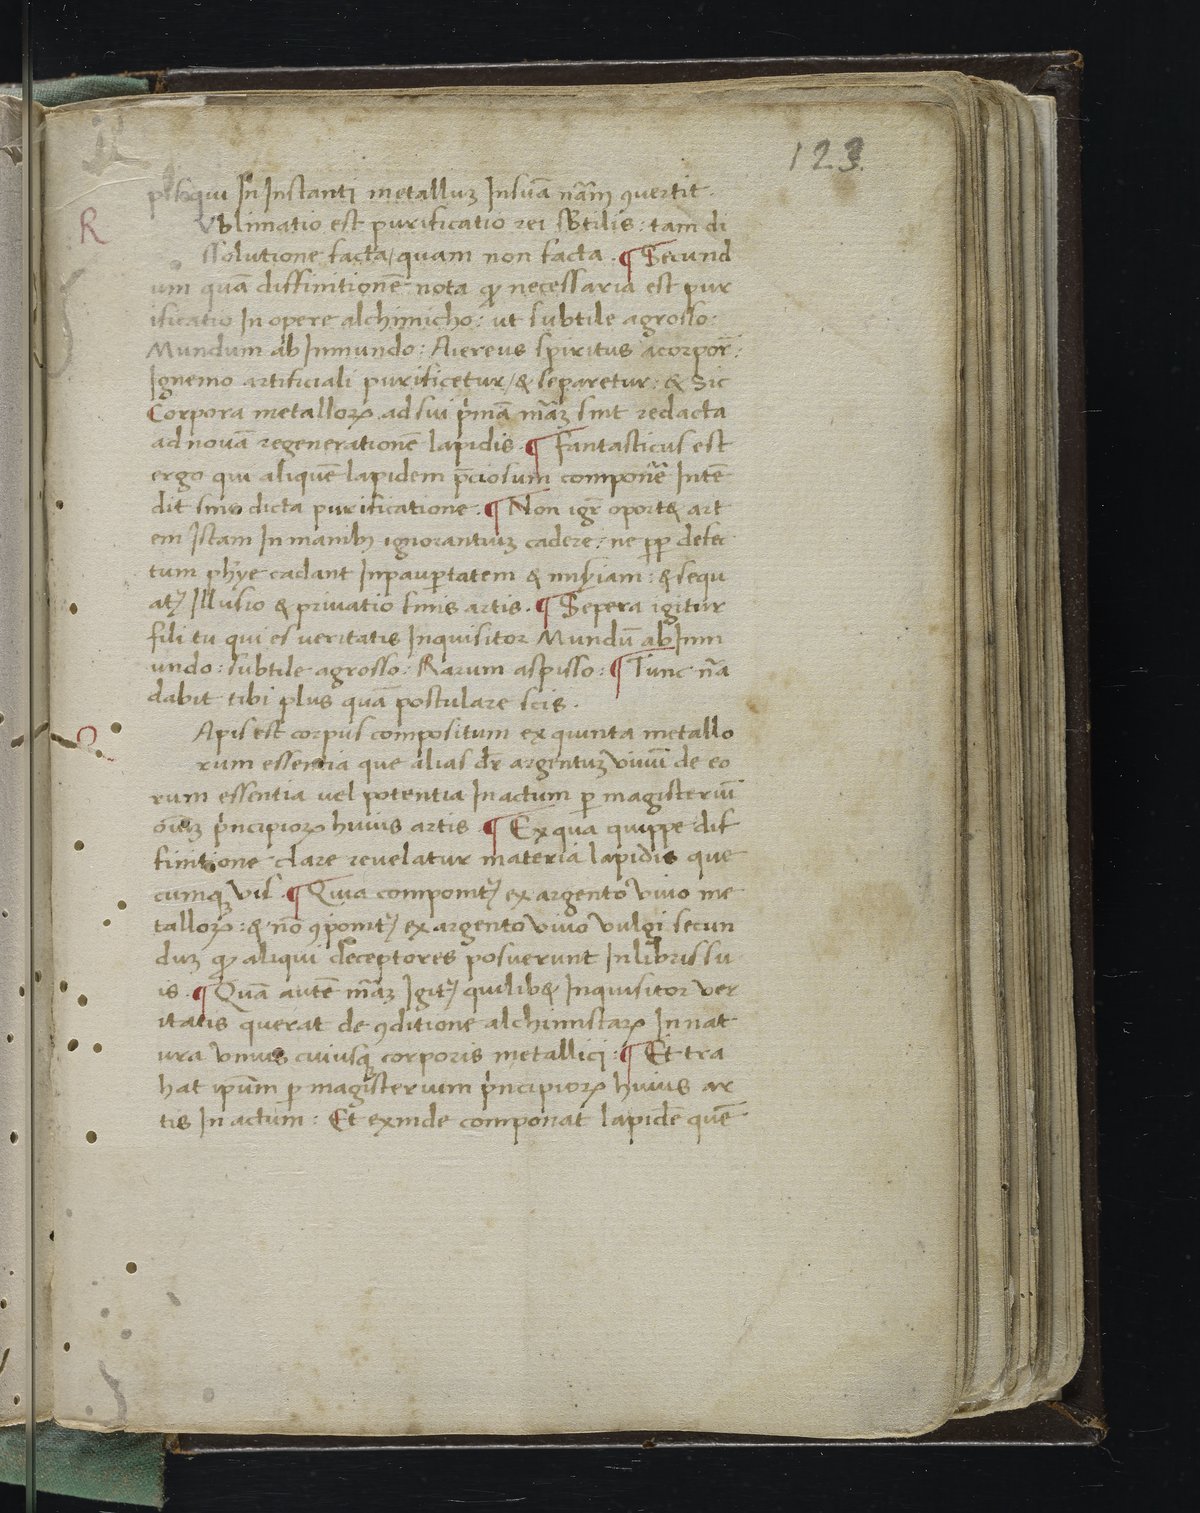 123
qui In Instanti metalluꝫ Insuā nāmꝫ ꝯuertit
R
vblimatio est purificatio rei sb̄tilis : tam di
ssolutione facta / quam non facta . ¶ Secund
um quā diffinitionē nota ꝙ necessaria est pur
ificatio In opere alchimicho : ut subtile agrosso :
Mundum ab Inmundo : Aiereus spiritus acorpor̄ :
Ignemo artificiali purificetur / & separetur : & Sic
Corpora metalloꝝ ad sui p̄mā māꝫ sint redacta
ad nouā regenerationē lapidis . ¶ Fantasticus est
ergo qui aliquē lapidem p̄ciosum componēr Intē
dit sine dicta purificatione . ¶ Non igr̄ oport& art
em Istam In manibꝫ ignorantiuꝫ cadere : ne ꝓꝑ defec
tum phýe cadant Inpauꝑtatem & : & sequ
atꝰ Illusio & priuatio finis artis . ¶ Sepera igitur
fili tu qui es veritatis Inquisitor Mundū ab Inm
undo : subtile agrosso : Rarum aspisso : ¶ Tunc nā
dabit tibi plus quā postulare scis .
Apis est corpus compositum ex quinta metallo
rum essentia que alias dr̄ argentuꝫ viuuı̄ de eo
rum essentia vel potentia In actum ꝑ magisteriuı̄
oīuꝫ p̄ncipioꝝ huius artis . ¶ Ex qua quippe dif
finitione clare reuelatur materia lapidis que
cumqꝫ vis . ¶ Quia componitꝰ ex argento viuo me
talloꝝ : & nō ꝯponitꝰ ex argento viuo vulgi secun
duꝫ ꝙ aliqui deceptores posuerunt Inlibris su
is . ¶ Quā autē māꝫ Igitꝰ quilib& Inquisitor ver
itatis querat de ꝯditione alchimistaꝝ In nat
ura vnius cuiusqꝫ corporis metallici : ¶ Et tra
hat ip̄um ꝑ magisterium p̄ncipioꝝ huius ar
tis In actum : Et exinde componat lapidē quē